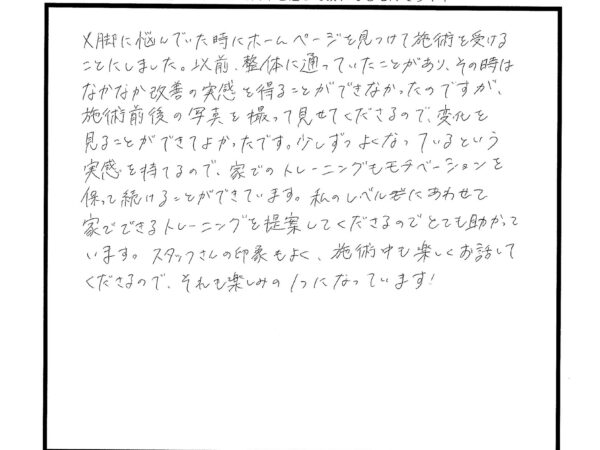 X脚に悩んでいた時にホームページを見つけて施術を受ける
ことにしました。以前、整体に通っていたことがあり、その時は
なかなか改善の実感を得ることができなかったのですが、
施術前後の写真を撮って見せてくださるので、変化を
見ることができてよかったです。少しずつよくなっているという
実感を持てるので、家でのトレーニングもモチベーションを
保って続けることができています。私のレベルにあわせて
家でできるトレーニングを提案してくださるのでとても助かって
います。スタッフさんの印象もよく、施術中も楽しくお話して
くださるので、それも楽しみの1つになっています!